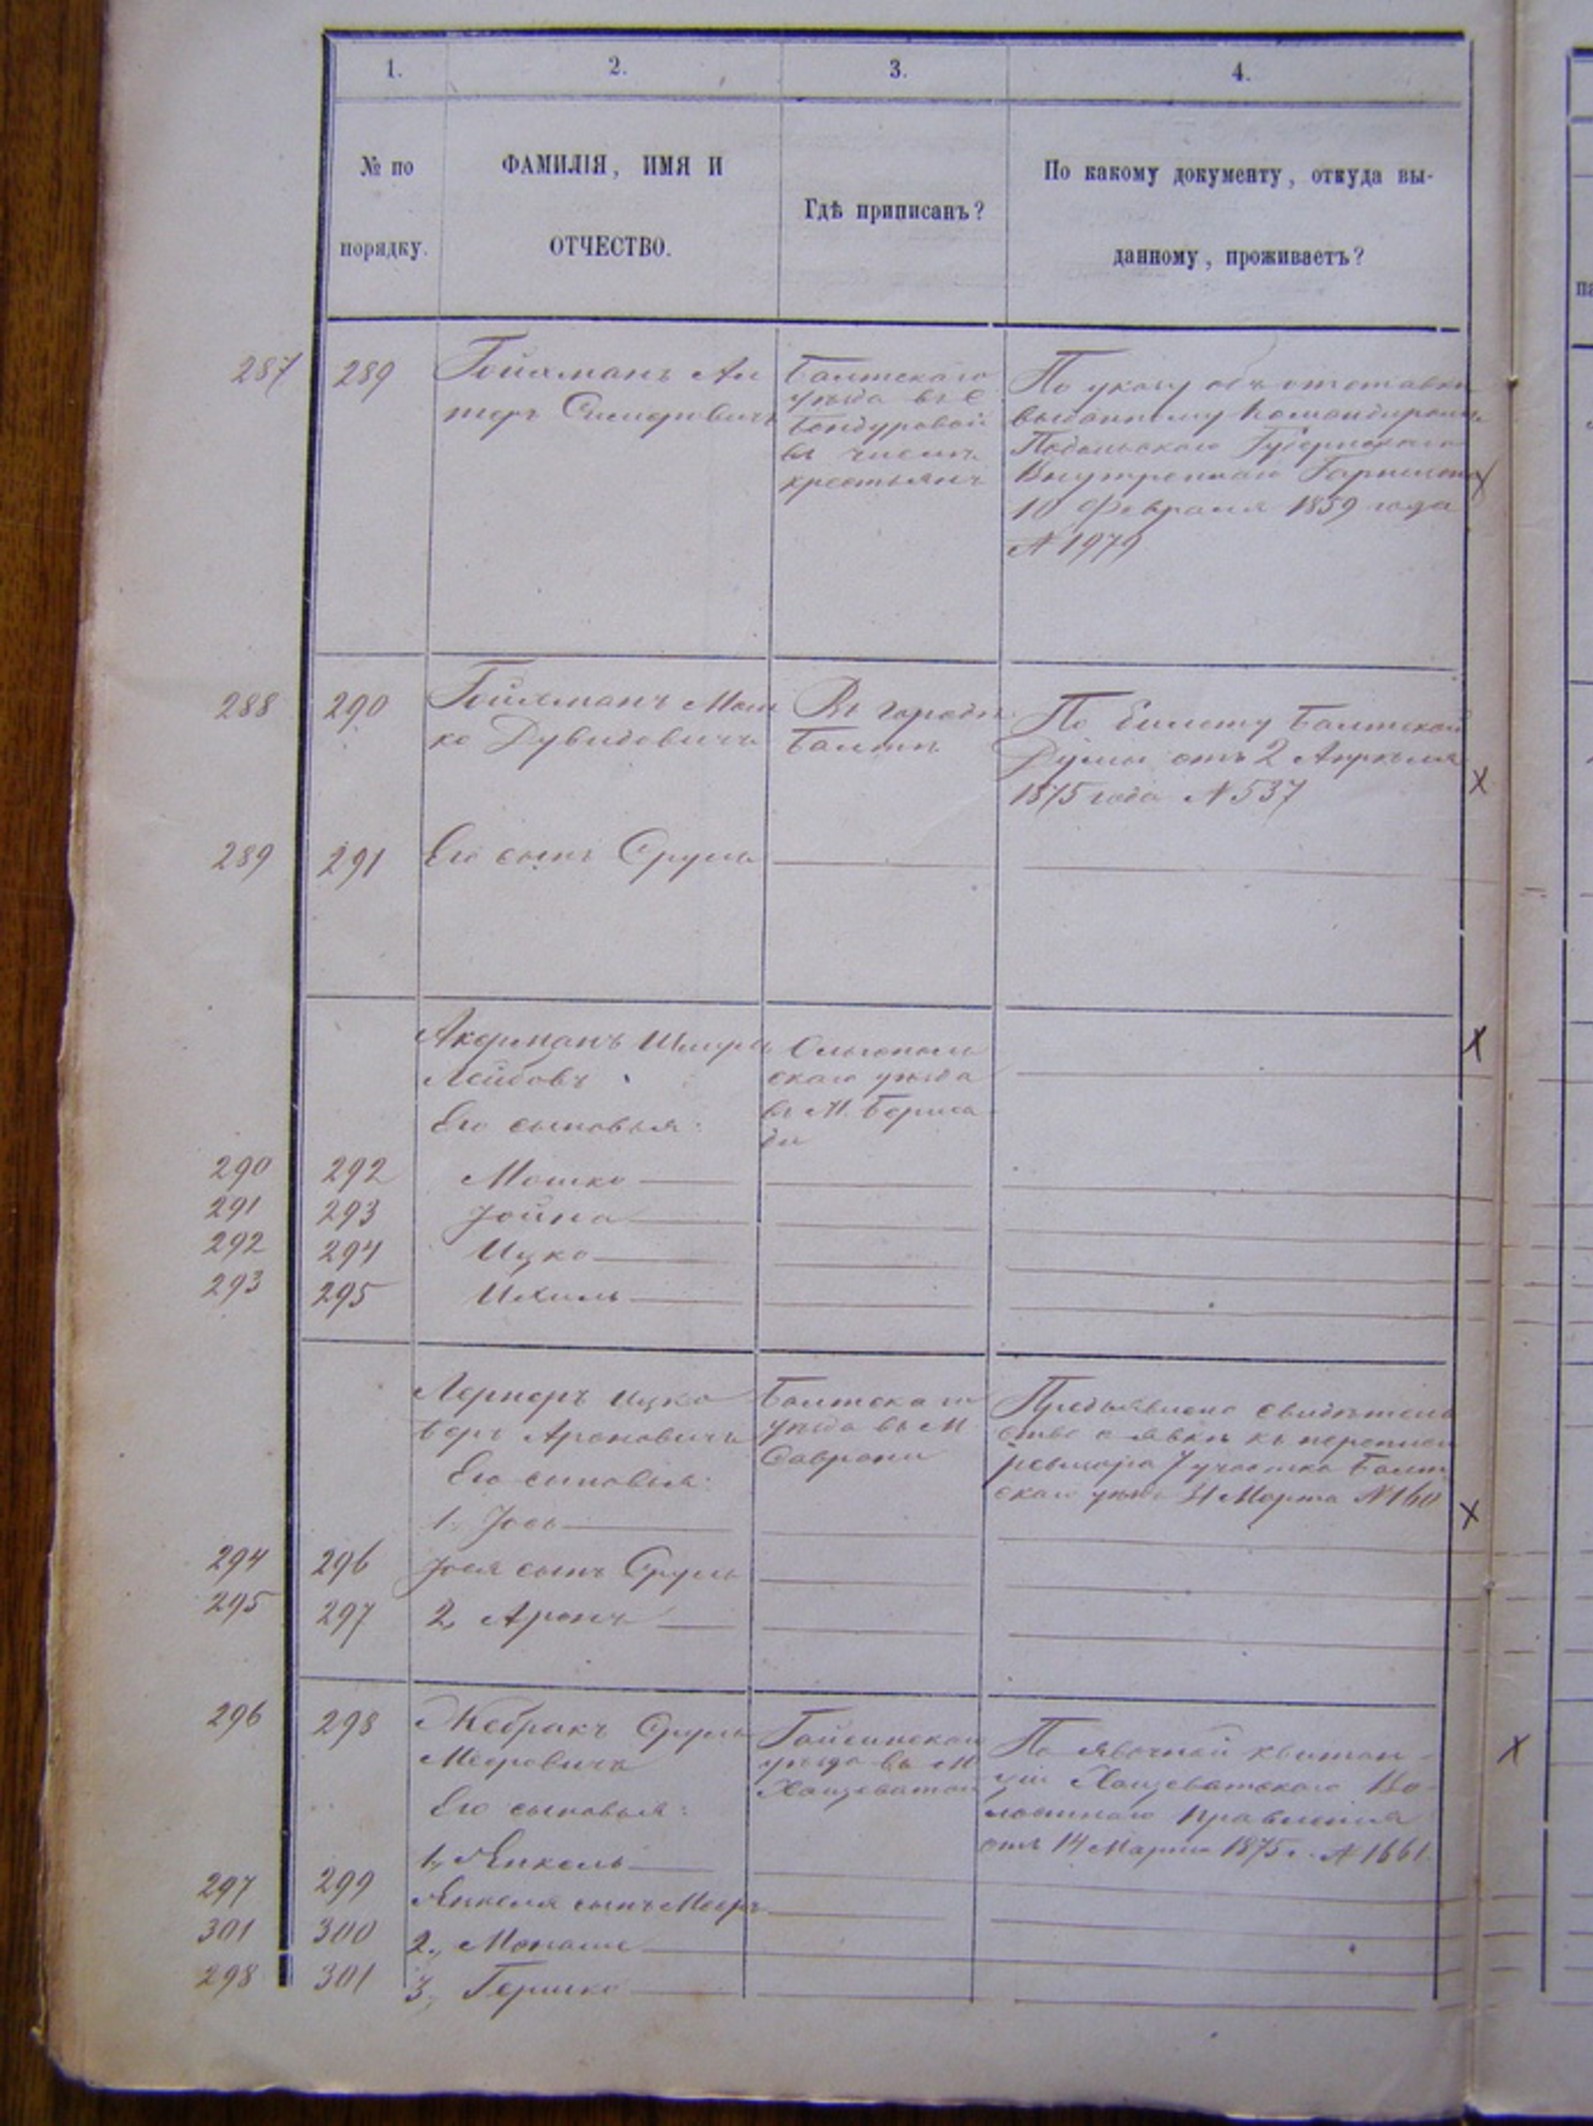 1. 2. 3. 4.
№ по
порядку.
ФАМИЛІЯ, ИМЯ И
ОТЧЕСТВО.
Гдѣ приписанъ?
По какому документу, откуда вы-
данному, проживаетъ?
287 289
Гойхманъ Ал
теръ
Балтскаго
уѣзда въ с.
Бондуровой
въ числѣ
крестьянъ
По указу объ отставкѣ
выданному Командиромъ
Подольскаго Губернскаго
Внутренняго Гарнизона
10 Февраля 1859 года
№ 1979
288 290
Гойхманъ Мош
ко Дувидовичъ
Въ городѣ
Балтѣ
По билету Балтской
Думы отъ 2 Апрѣля
1875 года № 537
289 291 Его сынъ Сруль
Акерманъ Шмуль
Лейбовъ
Его сыновья:
Ольгополь
скаго уѣзда
въ М. Берша
ди
290 292 Мошко
291 293 Іойна
292 294 Ицко
293 295 Ихиль
Лернеръ Ицко
Беръ Ароновичъ
Его сыновья:
1, Іось
Балтскаго
уѣзда въ М
Саврани
Предъявлено свидѣтель
ство о явкѣ къ переписи
ревизора 7 участка Балт
скаго уѣзда 31 Марта № 160
294 296 Іося сынъ Сруль
295 297 2, Аронъ
296 298
Жебракъ Сруль
Мееровичъ
Его сыновья:
1, Янкель
Гайсинскаго
уѣзда въ М
Хащеватой
По явочной квитан-
ціи Хащеватскаго Во-
лостнаго Правленія
отъ 14 Марта 1875 г. № 1661.
297 299 Янкеля сынъ Мееръ
301 300 2., Монаше
298 301 3, Гершко